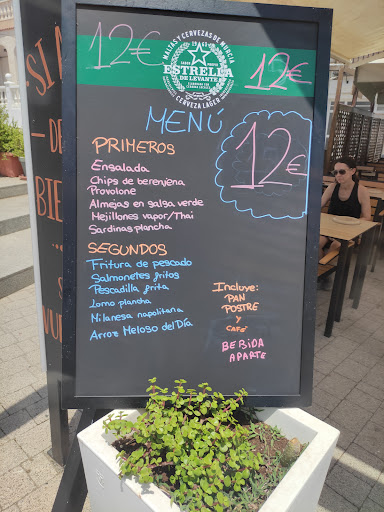 12€
MALTAS Y CERVEZAS DE MURCIA
1963
ESTRELLA
DE LEVANTE
CERVEZA LAGER
12€
MENÚ
12€
PRIMEROS
Ensalada
Chips de berenjena
Provolone
Almejas en salsa verde
Mejillones vapor/Thai
Sardinas plancha
SEGUNDOS
Fritura de pescado
Salmonetes fritos
Pescadilla frita
Lomo plancha
Milanesa napolitana
Arroz Meloso del Día
Incluye:
PAN
POSTRE
Y
CAFÉ
BEBIDA
APARTE
SI
DE
BIE